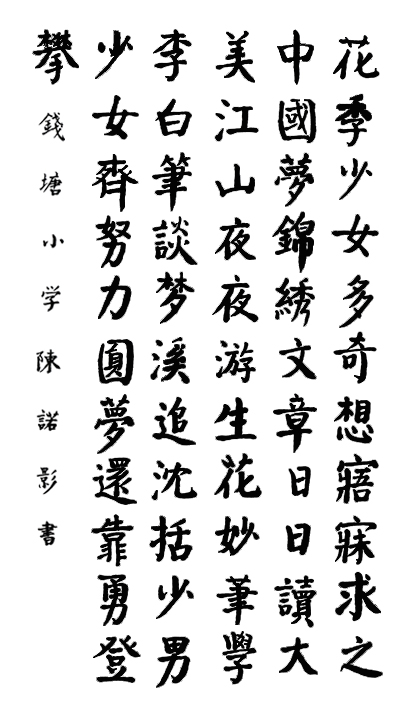 花季少女多奇想寤寐求之
中國夢錦綉文章日日讀大
美江山夜夜游生花妙筆學
李白筆談梦溪追沈括少男
少女齊努力圓夢還靠勇登
攀
錢塘小学陳諾影書